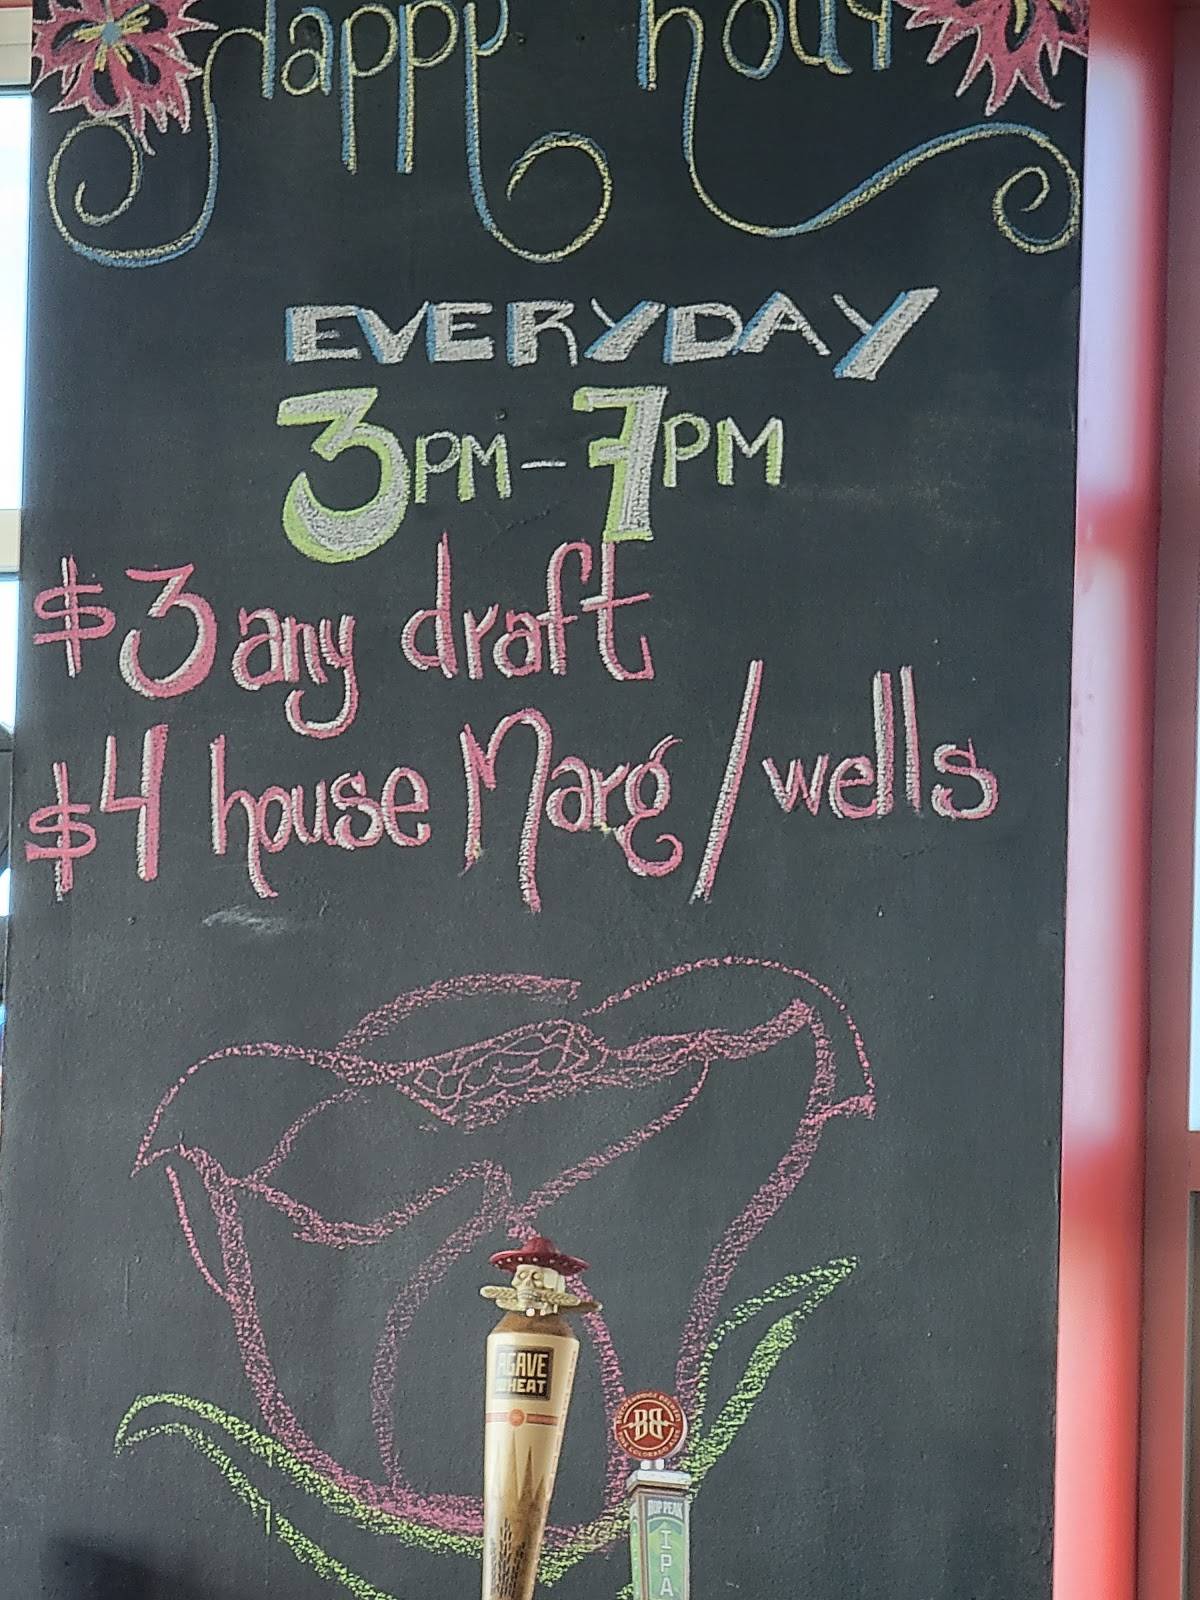 Happy hour
EVERYDAY
3PM-7PM
$3 any draft
$4 house Marg/wells
AGAVE
WHEAT
BB
HOP PEAK
IPA